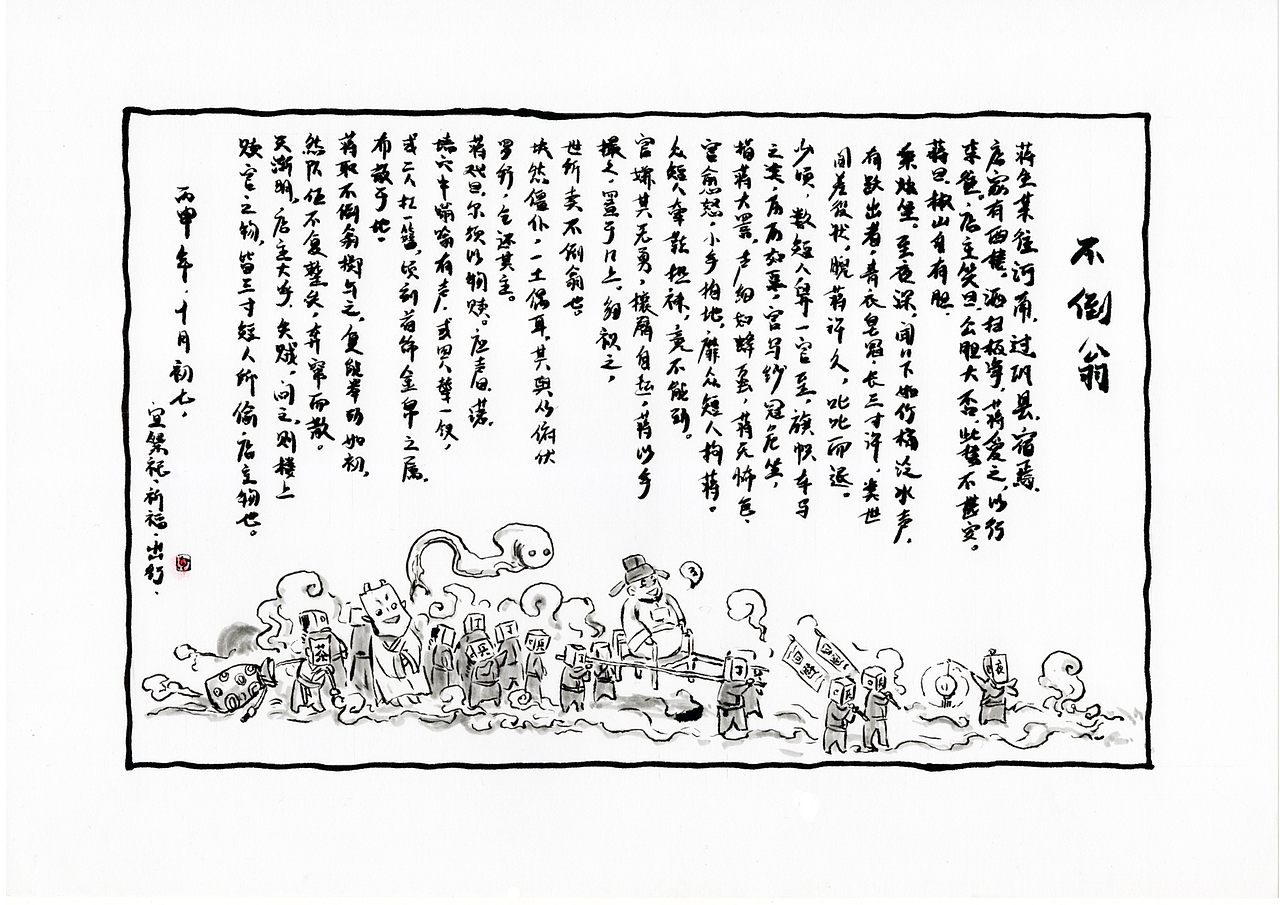 不倒翁
蒋生某往河南，过巩县，宿焉。
店家有西楼，洒扫极净，蒋爱之，以行
李，店主笑曰，公胆大否，此楼不甚安。
蒋曰，椒山自有胆，
秉烛坐。至夜深，闻几下如竹桶泛水声，
有跃出者，青衣皂冠，长三寸许，类世
间差役状。睨蒋许久，叱叱而退。
少顷，数短人舁一官至，旗帜车马
之类，历历如豆，官乌纱冠危坐，
指蒋大詈，声细如蜂虿，蒋无怖色，
官愈怒，小手拍地，麾众短人拘蒋。
众短人牵鞋扯袜，竟不能动。
官嫌其无勇，攘臂自起，蒋以手
撮之，置于几上，细视之，
世所卖不倒翁也。
块然僵仆，一土偶耳，其舆从俯伏
罗拜，乞还其主。
蒋戏曰，尔须以物赎。应声曰，诺。
墙穴中嗡嗡有声，或四人辇一钗，
或二人扛一簪，顷刻首饰金帛之属，
布散于地。
蒋取不倒翁掷与之，复能举动如初，
然队伍不复整矣，奔窜而散。
天渐明，店主大呼，失贼，问之，则楼上
赎官之物，皆三寸短人所偷，店主物也。
丙申年·十月初七，
宜祭祀·祈福·出行，
茶
丁
兵
丁
兵
丁
丁
回避
夜